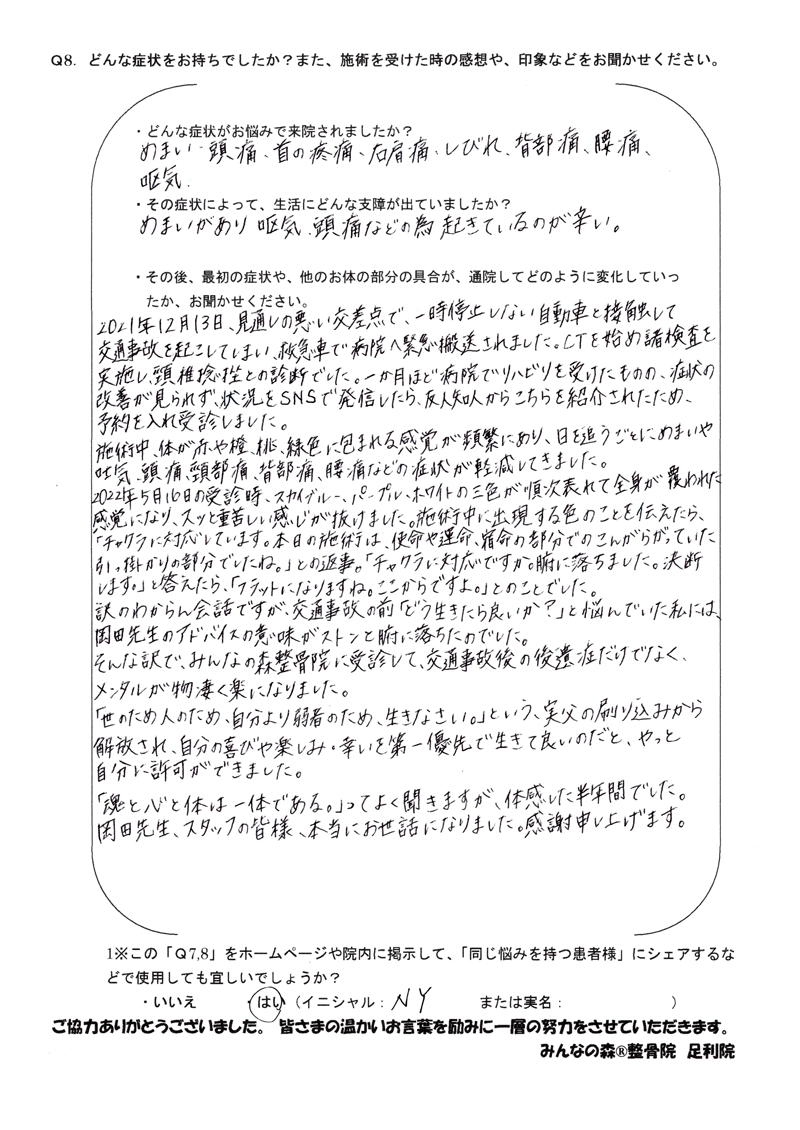 Q8. どんな症状をお持ちでしたか？また、施術を受けた時の感想や、印象などをお聞かせください。
・どんな症状がお悩みで来院されましたか？
めまい・頭痛、首の疼痛、右肩痛、しびれ、背部痛、腰痛、
嘔気.
・その症状によって、生活にどんな支障が出ていましたか？
めまいがあり 嘔気、頭痛などの為 起きているのが辛い。
・その後、最初の症状や、他のお体の部分の具合が、通院してどのように変化していっ
たか、お聞かせください。
2021年12月13日、見通しの悪い交差点で、一時停止しない自動車と接触して
交通事故を起こしてしまい、救急車で病院へ緊急搬送されました。CTを始め諸検査を
実施し、頸椎捻挫との診断でした。一か月ほど病院でリハビリを受けたものの、症状の
改善が見られず、状況をSNSで発信したら、友人知人からこちらを紹介されたため、
予約を入れ受診しました。
施術中、体が赤や橙、桃、緑色に包まれる感覚が頻繁にあり、日を追うごとにめまいや
吐気、頭痛、頸部痛、背部痛、腰痛などの症状が軽減してきました。
2022年5月16日の受診時、スカイブルー、パープル、ホワイトの三色が順次表れて全身が覆われた
感覚になり、スッと重苦しい感じが抜けました。施術中に出現する色のことを伝えたら、
「チャクラに対応しています。本日の施術は、使命や運命、宿命の部分でのこんがらがっていた
引っ掛かりの部分でしたね。」との返事。「チャクラに対応ですか。腑に落ちました。決断
します。」と答えたら、「フラットになりますね。ここからですよ。」とのことでした。
訳のわからん会話ですが、交通事故の前「どう生きたら良いか？」と悩んでいた私には、
岡田先生のアドバイスの意味がストンと腑に落ちたのでした。
そんな訳で、みんなの森整骨院に受診して、交通事故後の後遺症だけでなく、
メンタルが物凄く楽になりました。
「世のため人のため、自分より弱者のため、生きなさい。」という、実父の刷り込みから
解放され、自分の喜びや楽しみ・幸いを第一優先で生きて良いのだと、やっと
自分に許可ができました。
「魂と心と体は一体である。」ってよく聞きますが、体感した半年間でした。
岡田先生、スタッフの皆様、本当にお世話になりました。感謝申し上げます。
1※この「Q7,8」をホームページや院内に掲示して、「同じ悩みを持つ患者様」にシェアするな
どで使用しても宜しいでしょうか？
・いいえ ・はい（イニシャル： NY または実名： ）
ご協力ありがとうございました。 皆さまの温かいお言葉を励みに一層の努力をさせていただきます。
みんなの森®整骨院 足利院